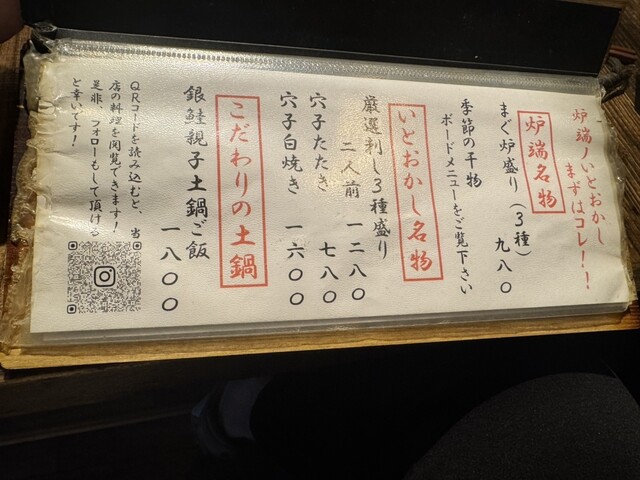 炉端ノいとおかし
まずはコレ！！
炉端名物
まぐ炉盛り（３種）
九八〇
季節の干物
ボードメニューをご覧下さい
いとおかし名物
厳選刺し３種盛り
二人前 一二八〇
穴子たたき 七八〇
穴子白焼き 一六〇〇
こだわりの土鍋
銀鮭親子土鍋ご飯
一八〇〇
ＱＲコードを読み込むと、当
店の料理を閲覧できます！
是非、フォローもして頂ける
と幸いです！